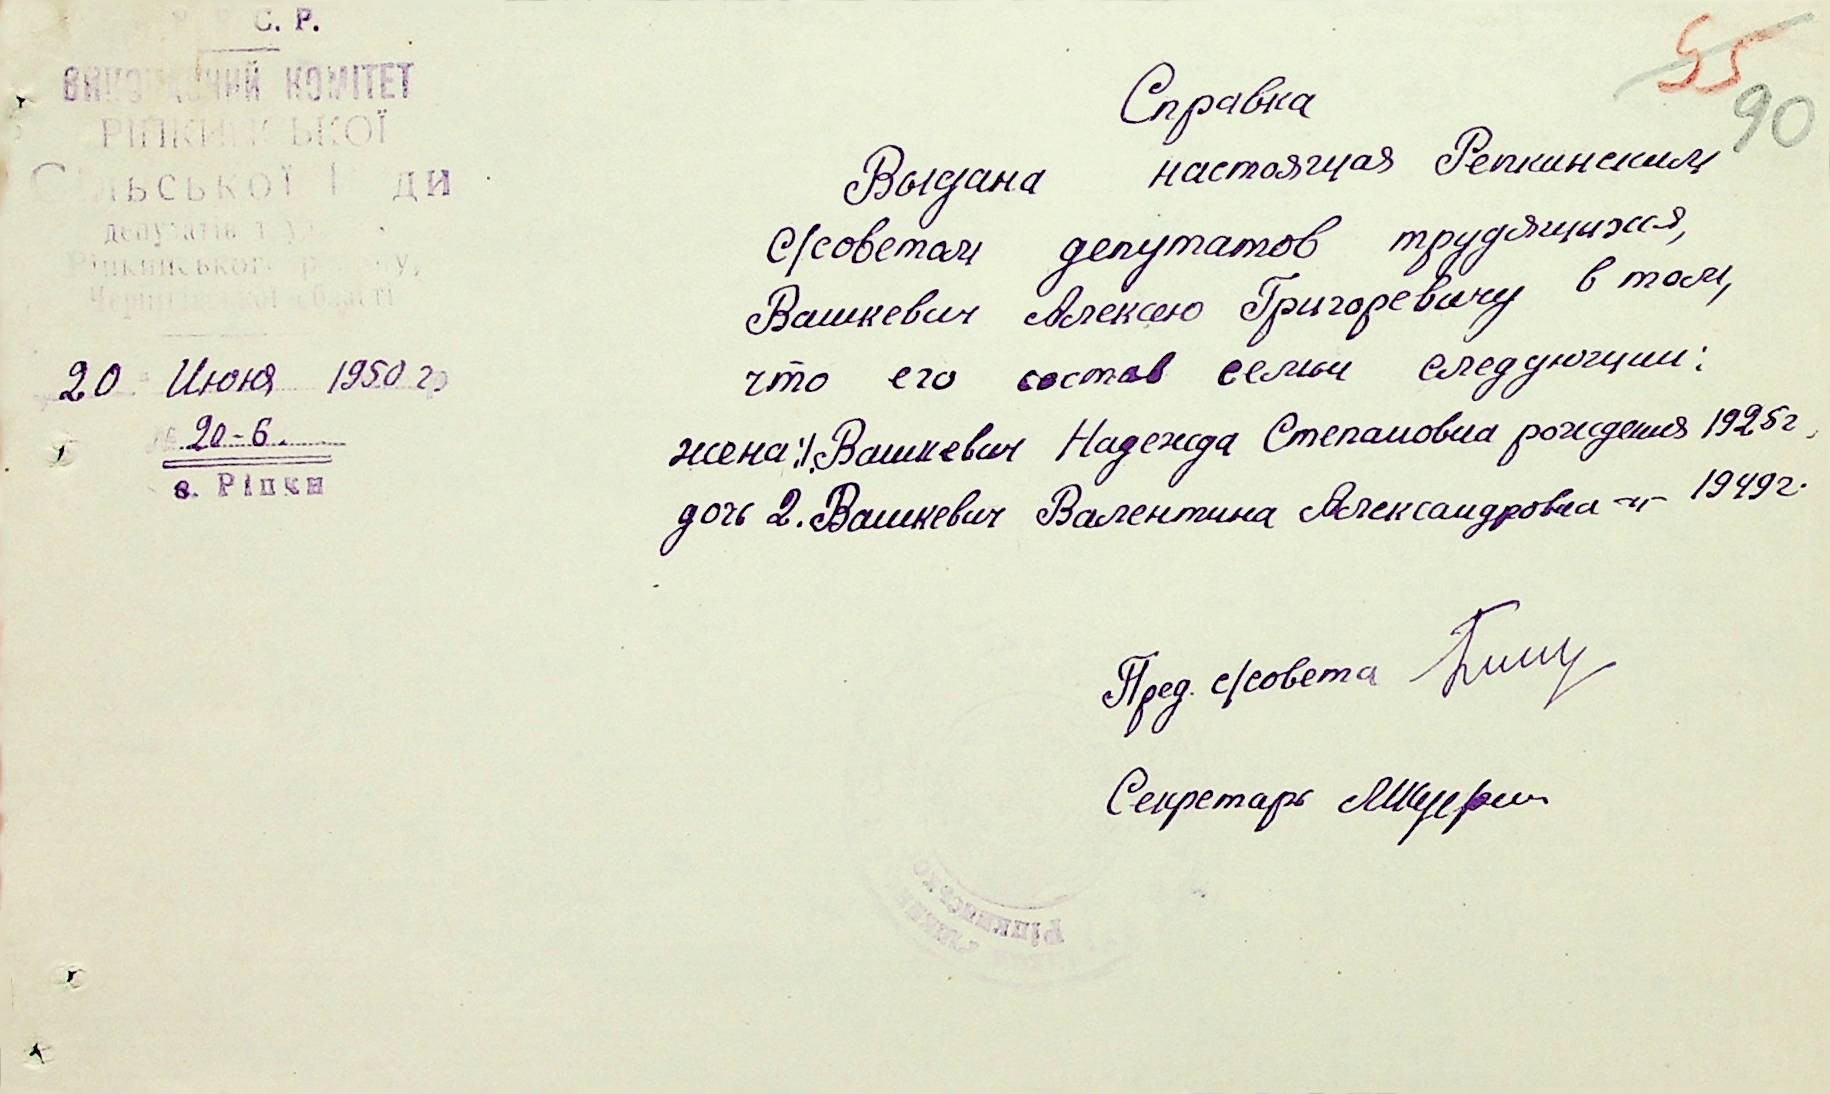 С. Р.
ВИКОНАВЧИЙ КОМІТЕТ
РІПКИНСЬКОЇ
Сільської Ради
депутатів
Ріпкинського району,
Чернігівської області
20 Июня 1950 г
№ 20-6.
с. Ріпки
55
90
Справка
Выдана настоящая Репкинским
с/советом депутатов трудящихся,
Вашкевич Алексею Григоревичу в том,
что его состав семьи следующии:
жена:1. Вашкевич Надежда Степановна рождения 1925г.
дочь 2. Вашкевич Валентина Александровна -"- 1949г.
Пред. с/совета
Секретарь
Ріпкинсько